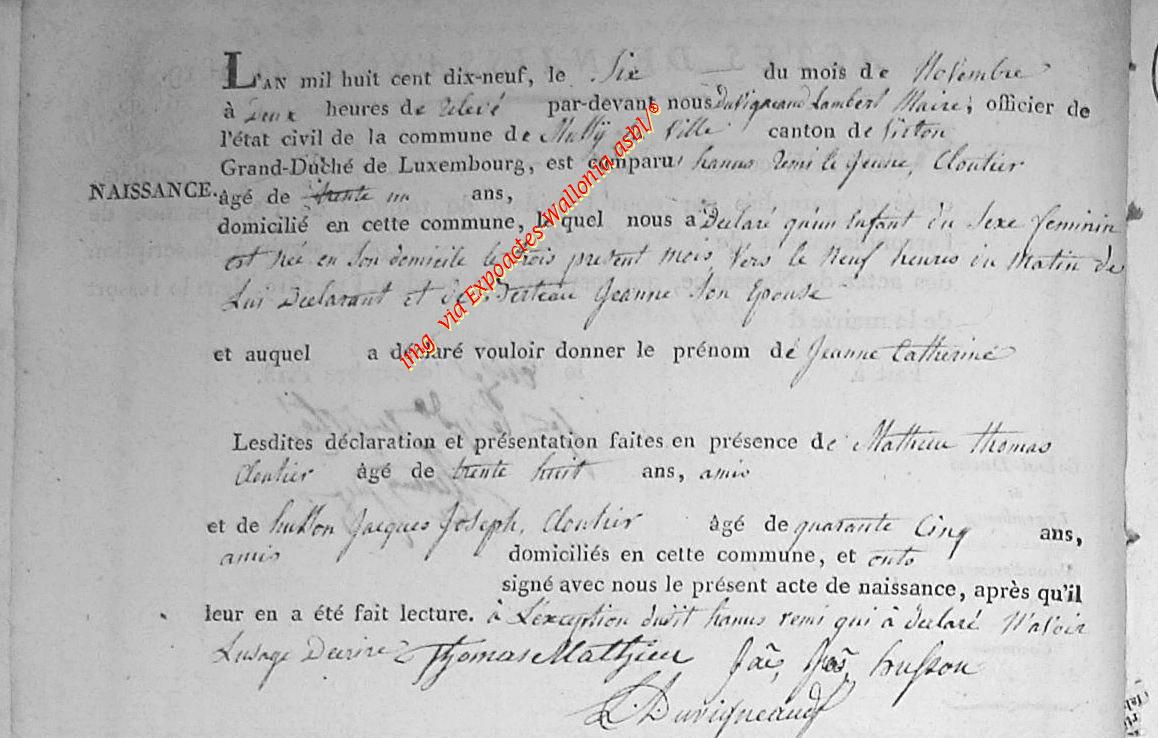 L'AN mil huit cent dix-neuf, le Six du mois de Novembre
à Deux heures de relevé par-devant nous Duvigneaud Lambert Maire, officier de
l'état civil de la commune de Mussÿ la Ville canton de Virton
Grand-Duché de Luxembourg, est comparu hanus remi le jeune, Cloutier
NAISSANCE. âgé de trente un ans,
domicilié en cette commune, lequel nous a Declaré qu'un Enfant du Sexe feminin
est née en Son domicile le trois present mois vers le Neuf heures du matin de
Lui Declarant et de Jeanne Son Epouse
et auquel a déclaré vouloir donner le prénom de Jeanne Catherine
Lesdites déclaration et présentation faites en présence de Mathieu thomas
Cloutier âgé de trente huit ans, amis
et de husson Jacques Joseph, Cloutier âgé de quarante Cinq ans,
amis domiciliés en cette commune, et onts
signé avec nous le présent acte de naissance, après qu'il
leur en a été fait lecture. à L'exception dudit hanus remi qui à declaré N'avoir
Lusage Decrire Thomas Mathieu husson
L. Duvigneaud
img via Expoactes-Wallonia asbl/®